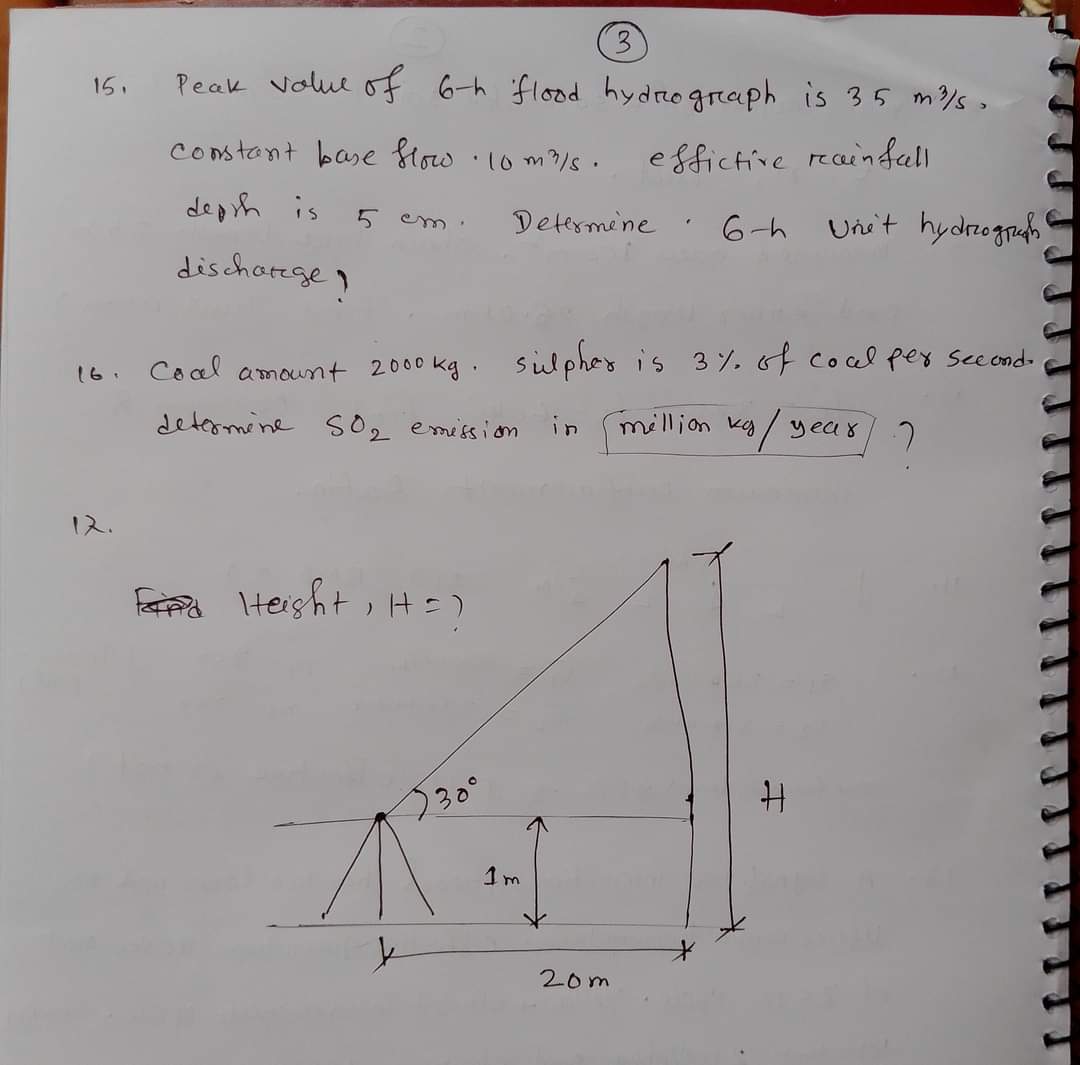 3
15. Peak value of 6-h flood hydrograph is 35 m³/s.
constant base flow 10 m³/s. effictive rainfall
depth is 5 cm. Determine 6-h Unit hydrograph
discharge?
16. Coal amount 2000 kg. sulpher is 3% of coal per second.
determine SO₂ emission in million kg/year ?
17.
Height, H = ?
30°
H
1m
20m